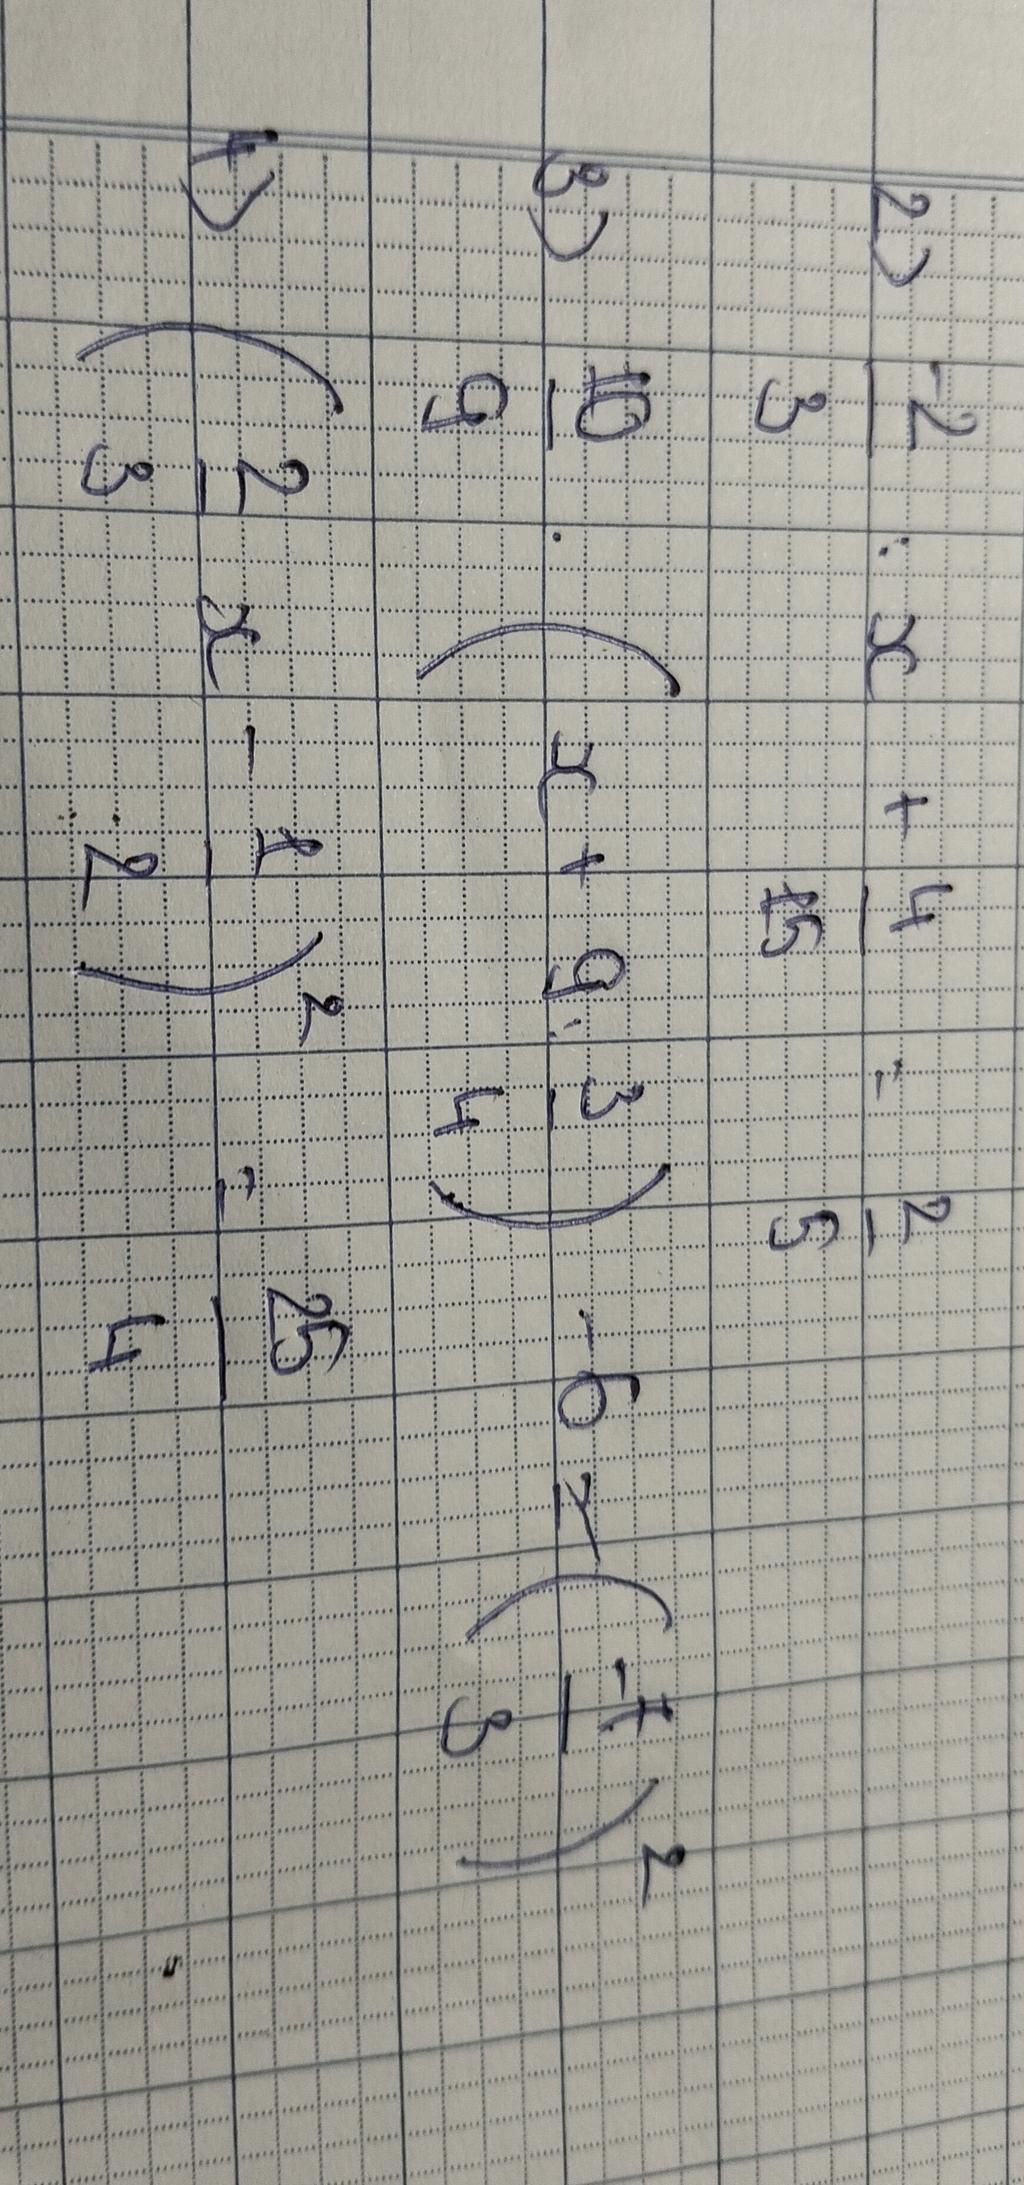 2) -2/3 : x + 4/15 = 2/5
3) 10/9 · (x + 9 : 3/4) - 6 ≥ (-1/3)²
4) (2/3 x - 1/2)² = 25/4